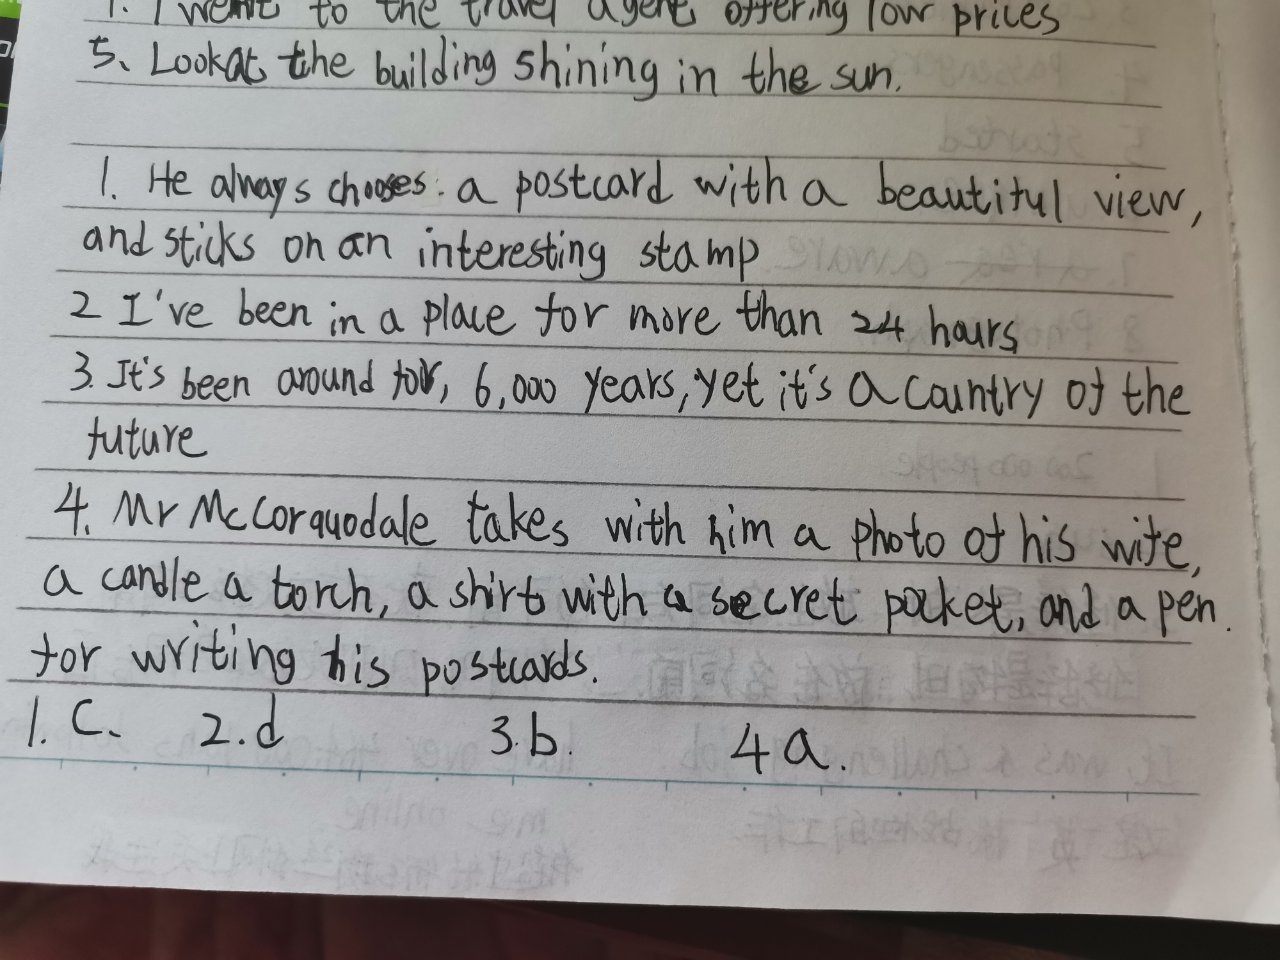 I went to the travel agent offering low prices
5、Look at the building shining in the sun.
1. He always chooses a postcard with a beautiful view,
and sticks on an interesting stamp
2 I've been in a place for more than 24 hours
3. It's been around for, 6,000 years, yet it's a country of the
future
4. Mr McCorquodale takes with him a photo of his wife,
a candle a torch, a shirt with a secret pocket, and a pen.
for writing his postcards.
1. C. 2. d 3. b. 4 a.